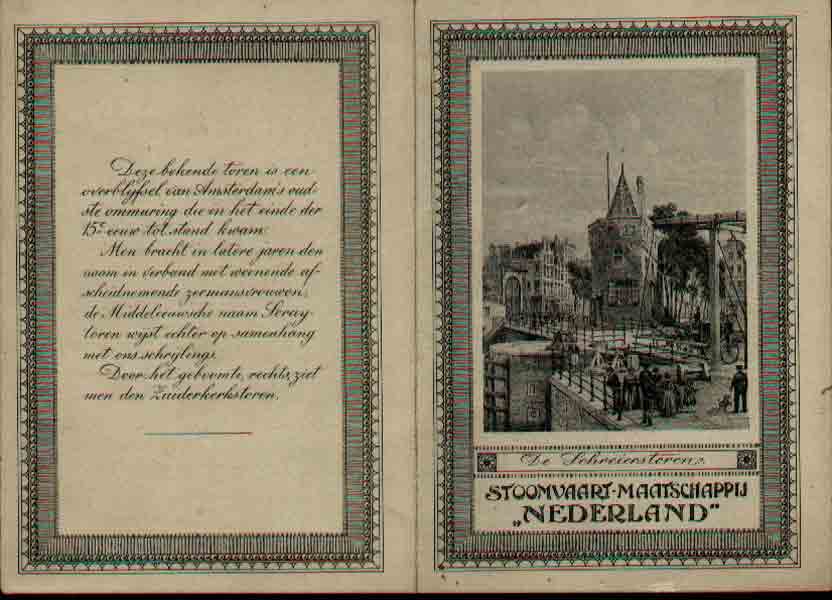 Deze bekende toren is een
overblijfsel van Amsterdam's oud-
ste ommuring die in het einde der
15e eeuw tot stand kwam.
Men bracht in latere jaren den
naam in verband met weenende af-
scheidnemende zeemansvrouwen,
de Middeleeuwsche naam Scray-
toren wijst echter op samenhang
met ons schrijlings.
Door het geboomte, rechts, ziet
men den Zuiderkerkstoren.
De Schreierstoren.
STOOMVAART-MAATSCHAPPIJ
„NEDERLAND"